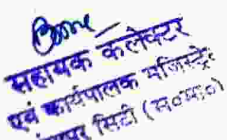 सहायक कलेक्टर
एवं कार्यपालक मजिस्ट्रेट
सिटी (म०भ०)